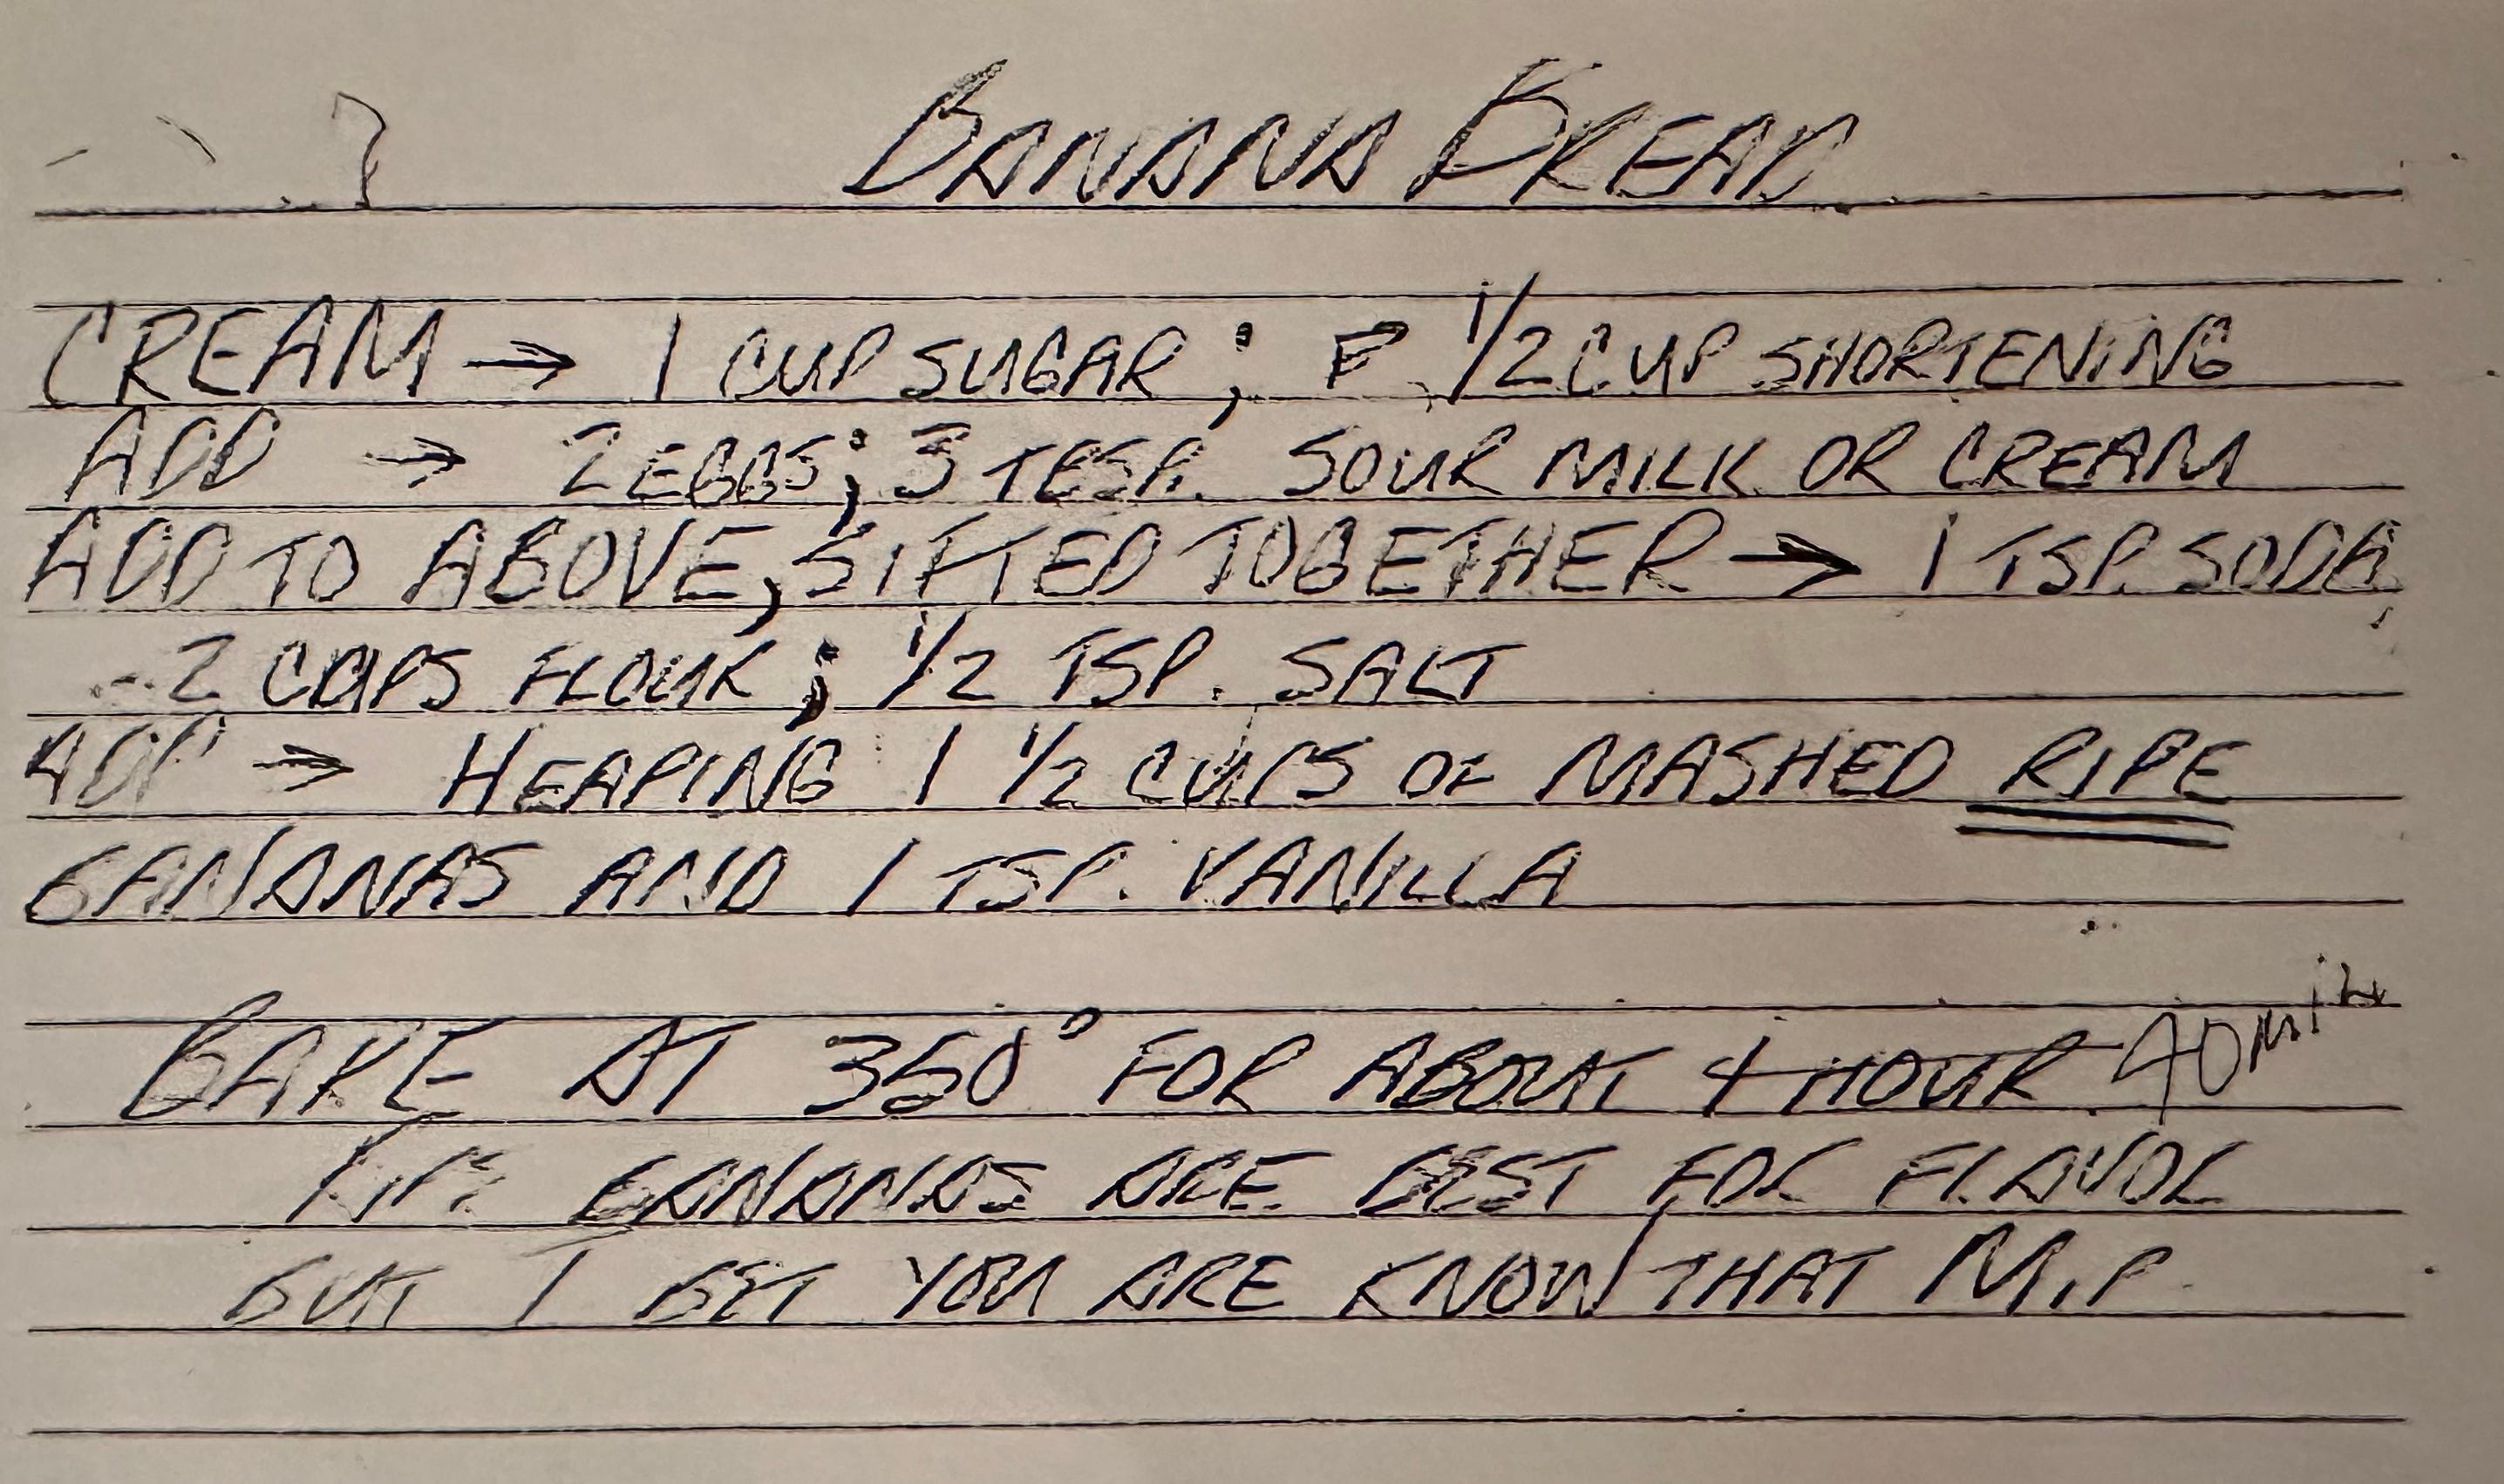 BANANA BREAD
CREAM → 1 CUP SUGAR; 1/2 CUP SHORTENING
ADD → 2 EGGS; 3 TESP. SOUR MILK OR CREAM
ADD TO ABOVE, SIFTED TOGETHER → 1 TSP. SODA,
2 CUPS FLOUR; 1/2 TSP. SALT
ADD → HEAPING 1 1/2 CUPS OF MASHED RIPE
BANANAS AND 1 TSP. VANILLA
BAKE AT 350° FOR ABOUT 1 HOUR 40 min
BANANAS ARE BEST FOR FLAVOR
BUT I BET YOU ARE KNOW THAT M.P.